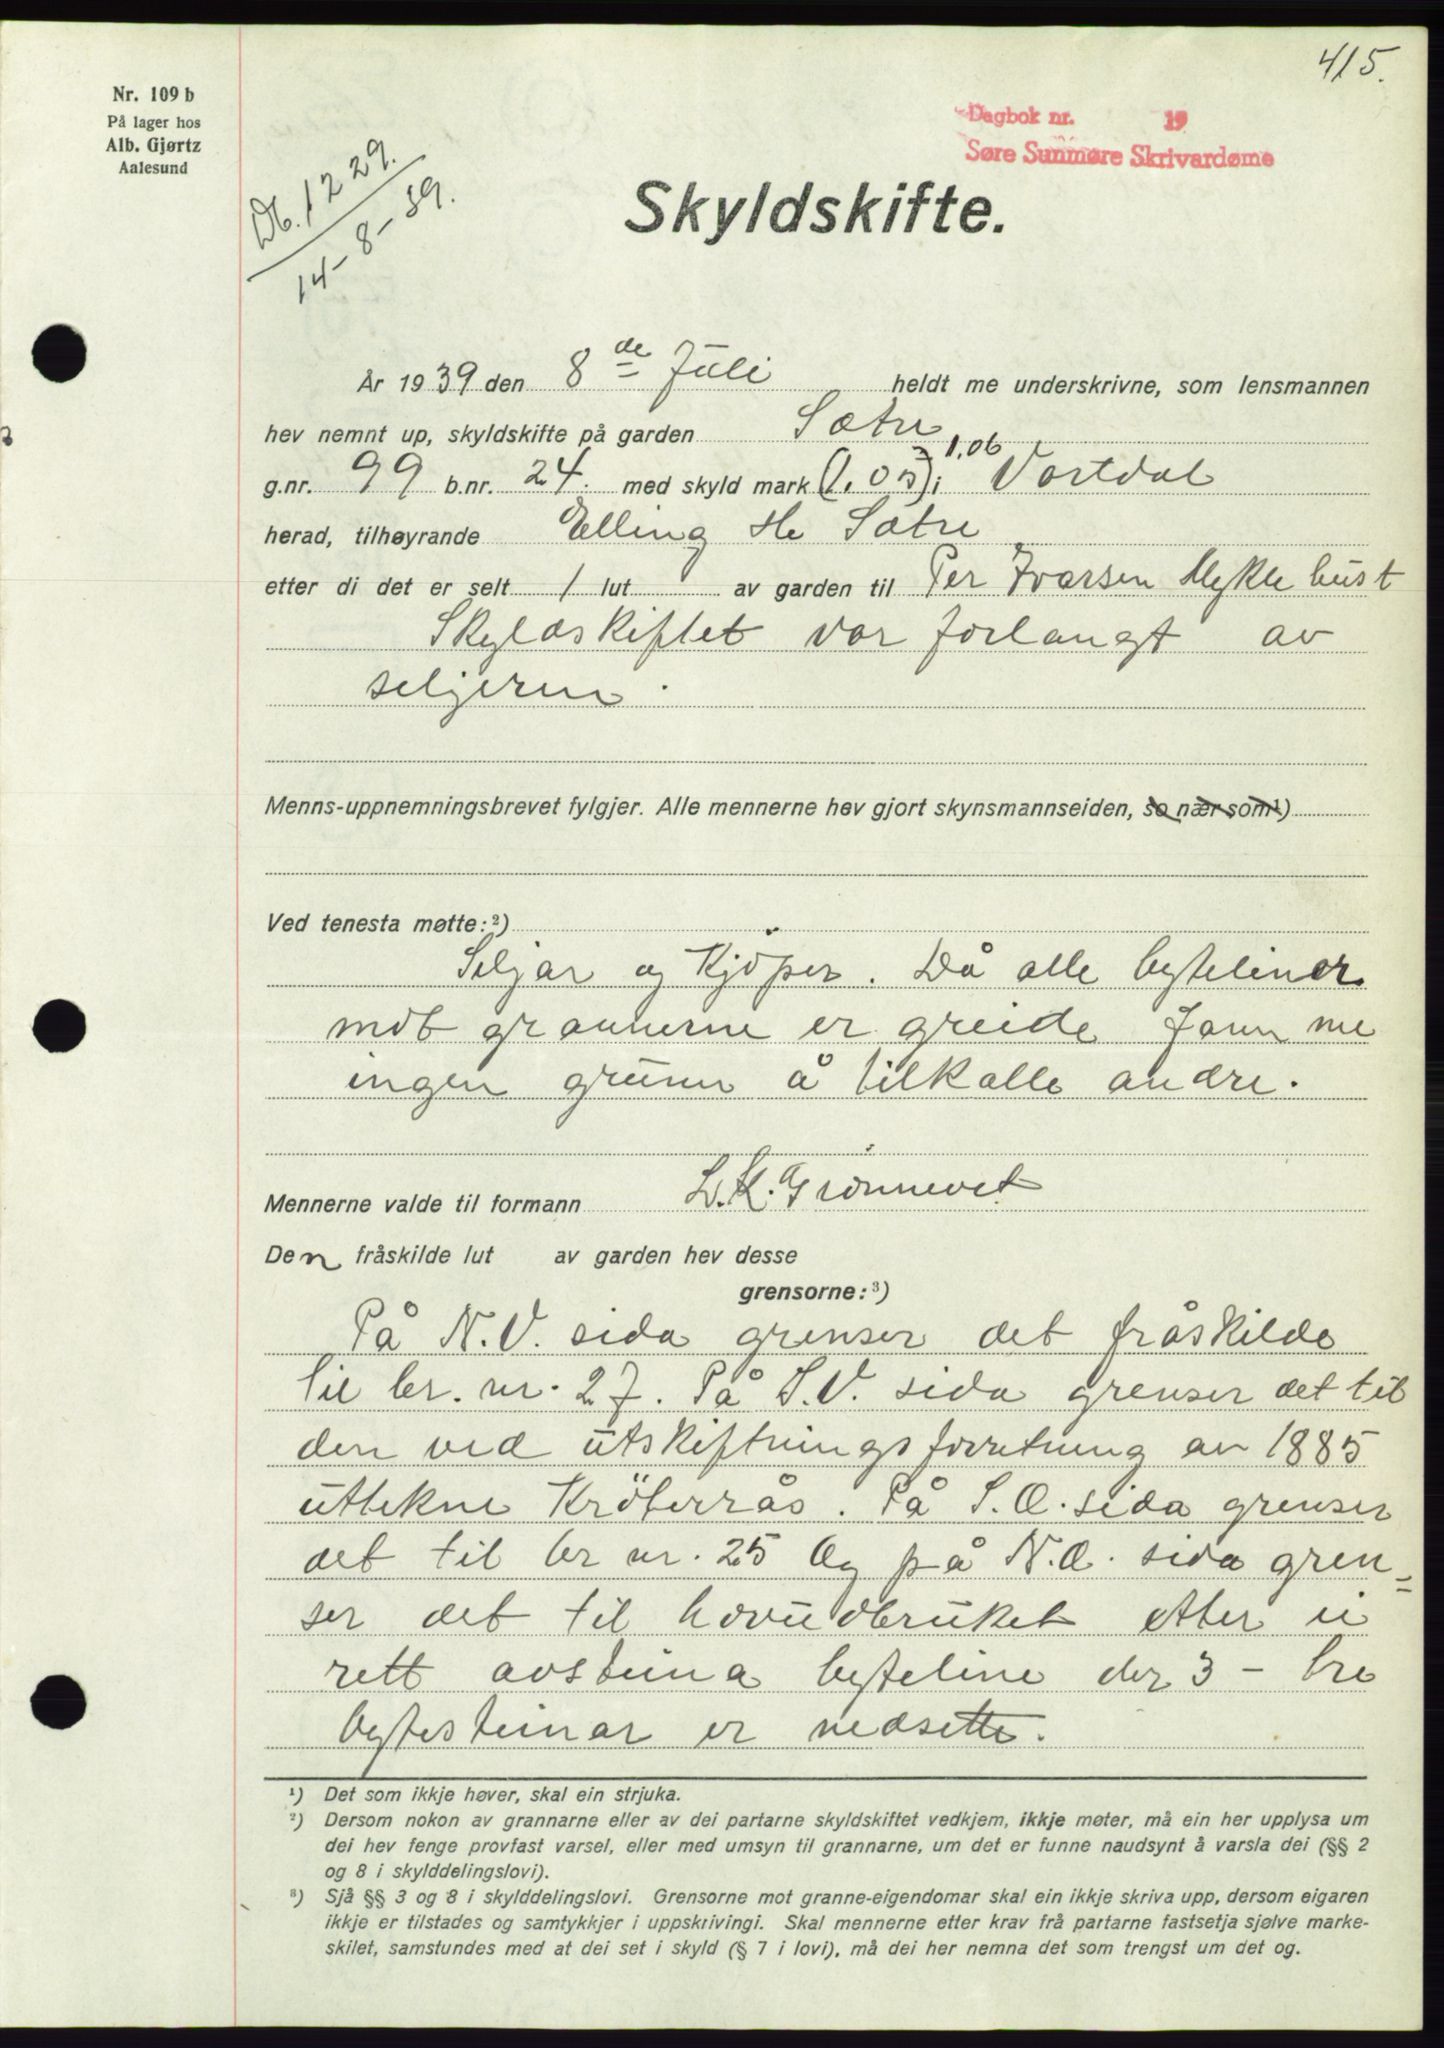 415.
Nr. 109 b
På lager hos
Alb. Gjørtz
Aalesund
Dagbok nr. 19
Søre Sunmøre Skrivardøme
Db. 1229.
14-8-39.
Skyldskifte.
År 1939 den 8de Juli heldt me underskrivne, som lensmannen
hev nemnt up, skyldskifte på garden Sætre
1,06
g.nr. 99 b.nr. 24. med skyld mark (1.05) i Vartdal
herad, tilhøyrande Elling He Sætre
etter di det er selt 1 lut av garden til Per Ivarsen Myklebust
Skyldskiftet var forlangt av
seljeren.
Menns-uppnemningsbrevet fylgjer. Alle mennerne hev gjort skynsmannseiden, so nær som¹)
Ved tenesta møtte:²)
Seljar og Kjöper. Då alle byteliner
mot grannerne er greide fann me
ingen grunn å tilkalle andre.
Mennerne valde til formann L.K. Grönnevet
Den fråskilde lut av garden hev desse
grensorne:³)
På N.V. sida grenser det fråskilde
til br. nr. 27. På S.V. sida grenser det til
den ved utskiftningsforretning av 1885
uttekne Kröterrås. På S.O. sida grenser
det til br nr. 25 Og på N.O. sida gren=
ser det til hovudbruket etter ei
rett avsteina byteline der 3 - tre
bytesteinar er nedsette.
¹) Det som ikkje høver, skal ein strjuka.
²) Dersom nokon av grannarne eller av dei partarne skyldskiftet vedkjem, ikkje møter, må ein her upplysa um
dei hev fenge provfast varsel, eller med umsyn til grannarne, um det er funne naudsynt å varsla dei (§§ 2
og 8 i skylddelingslovi).
³) Sjå §§ 3 og 8 i skylddelingslovi. Grensorne mot granne-eigendomar skal ein ikkje skriva upp, dersom eigaren
ikkje er tilstades og samtykkjer i uppskrivingi. Skal mennerne etter krav frå partarne fastsetja sjølve marke-
skilet, samstundes med at dei set i skyld (§ 7 i lovi), må dei her nemna det som trengst um det og.